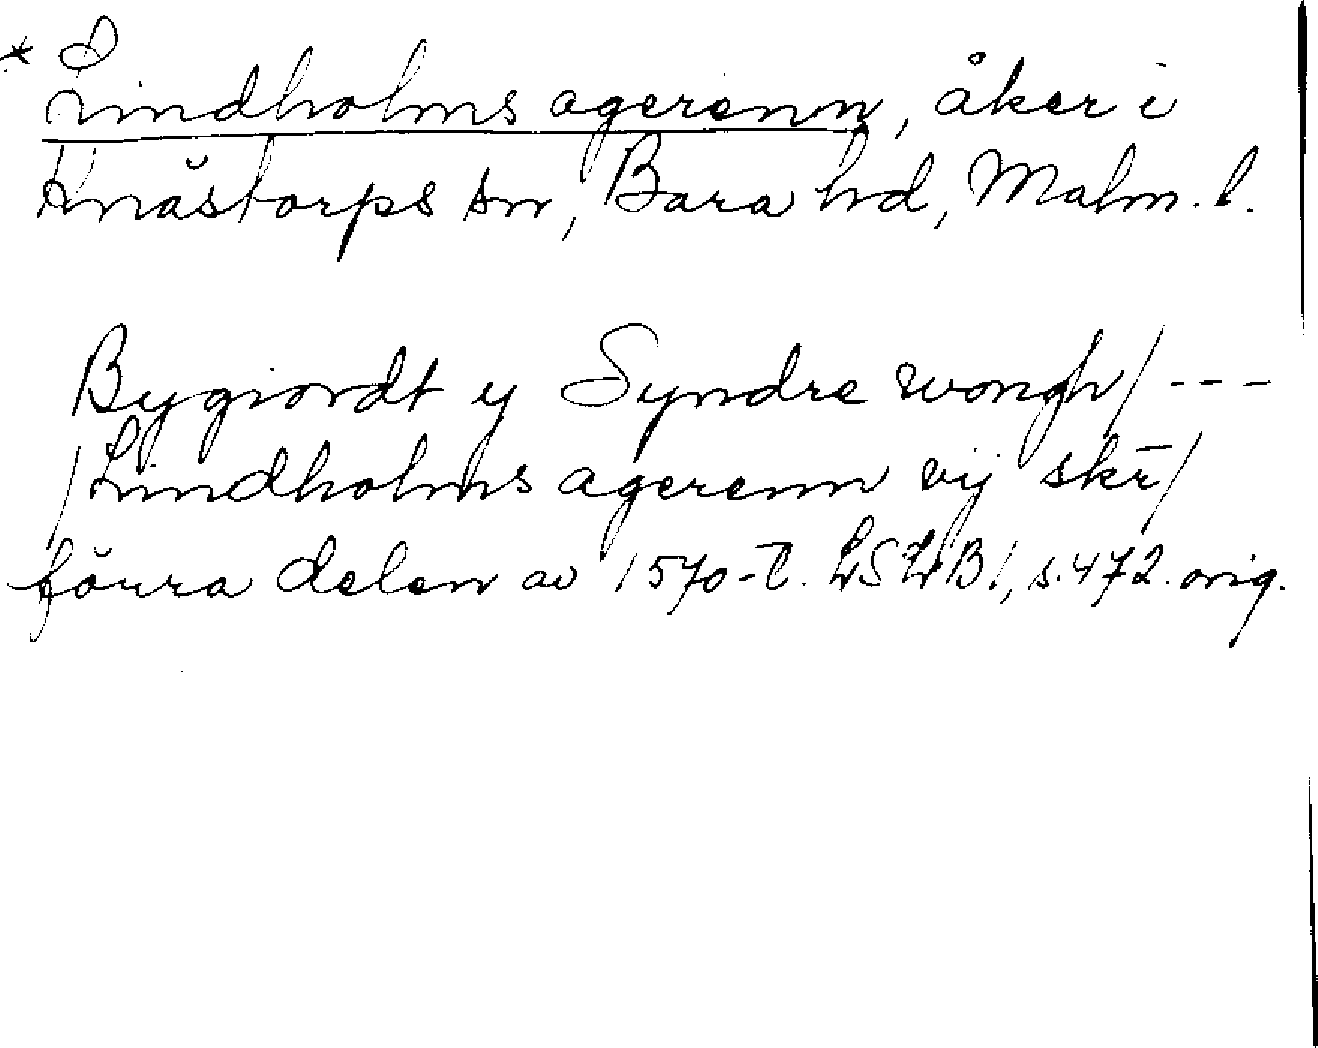 * Lindholms agerenn, åker i
Knästorps sn, Bara hd, Malm. l.
Bygiordt y Syndre wongh/ ---
/Lindholms agerenn vij skr̄/
förra delen av 1570-t. LSLB1, s. 472. orig.